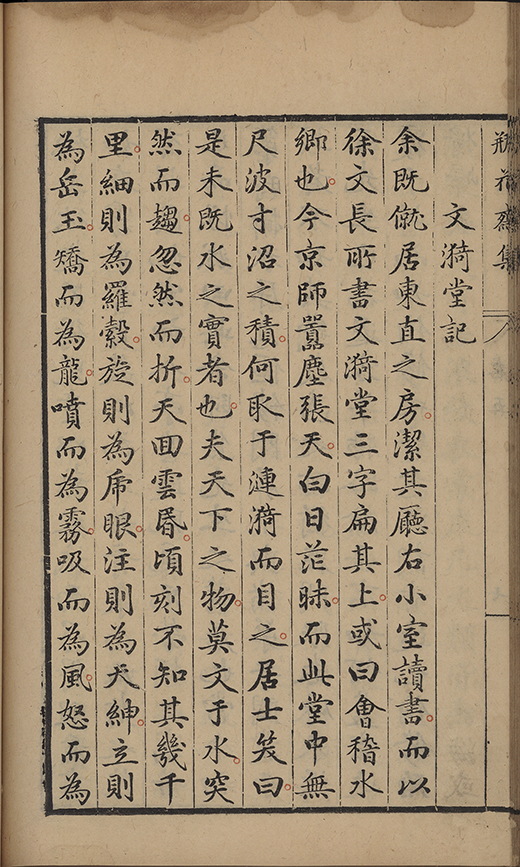 瓶花齋集
文漪堂記
余既僦居東直之房潔其廳右小室讀書而以
徐文長所書文漪堂三字扁其上或曰會稽水
鄉也今京師囂塵張天白日茫昧而此堂中無
尺波寸沼之積何取于漣漪而目之居士笑曰
是未既水之實者也夫天下之物莫文于水突
然而趨忽然而折天回雲昏頃刻不知其幾千
里細則為羅縠旋則為虎眼注則為天紳立則
為岳玉矯而為龍噴而為霧吸而為風怒而為